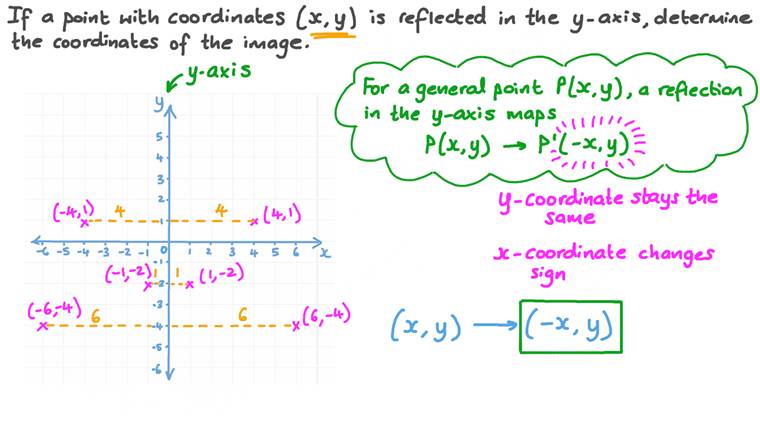 If a point with coordinates (x,y) is reflected in the y-axis, determine
the coordinates of the image.
y-axis
For a general point P(x,y), a reflection
in the y-axis maps
P(x,y) → P'(-x,y)
y
5
4
3
2
(-4,1) 4 4 (4,1)
1
y-coordinate stays the
same
-6 -5 -4 -3 -2 -1 0 1 2 3 4 5 6 x
x-coordinate changes
sign
-1
(-1,-2) 1 1 (1,-2)
-2
-3
(-6,-4) 6 6 (6,-4)
-4
(x,y) → (-x,y)
-5
-6